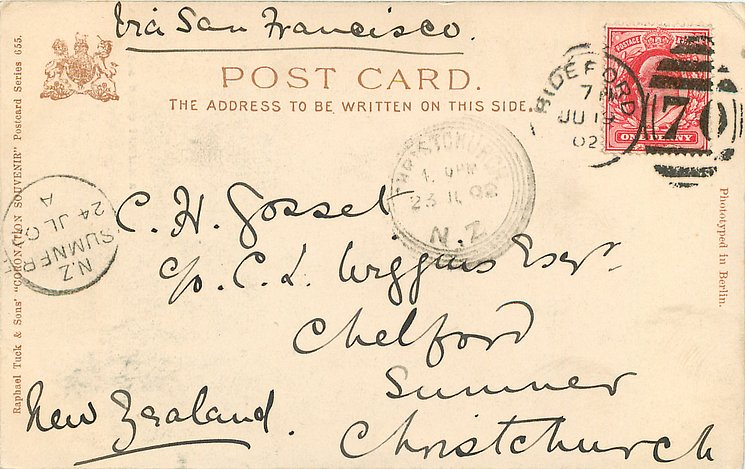 Via San Francisco.
POST CARD.
THE ADDRESS TO BE WRITTEN ON THIS SIDE.
POSTAGE
ONE PENNY
BIDEFORD
7 PM
JU 19
02
70
CHRISTCHURCH
1. 0PM
23 JL 02
N.Z
N.Z
SUMNER
24 JL 0
A
C. H. Gosset
c/o. C. L. Wiggins Esqr.
Chelford
Sumner
Christchurch
New Zealand.
Raphael Tuck & Sons' "CORONATION SOUVENIR" Postcard Series 655.
Phototyped in Berlin.